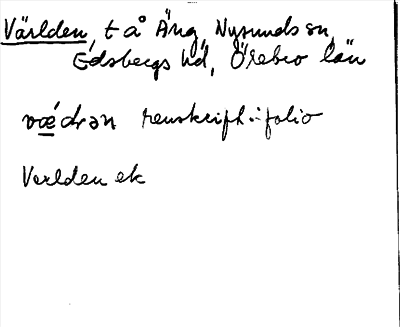 Världen, t å Äng, Nysunds sn,
Edsbergs hd, Örebro län
vǽdrən renskrift i folio
Verlden ek